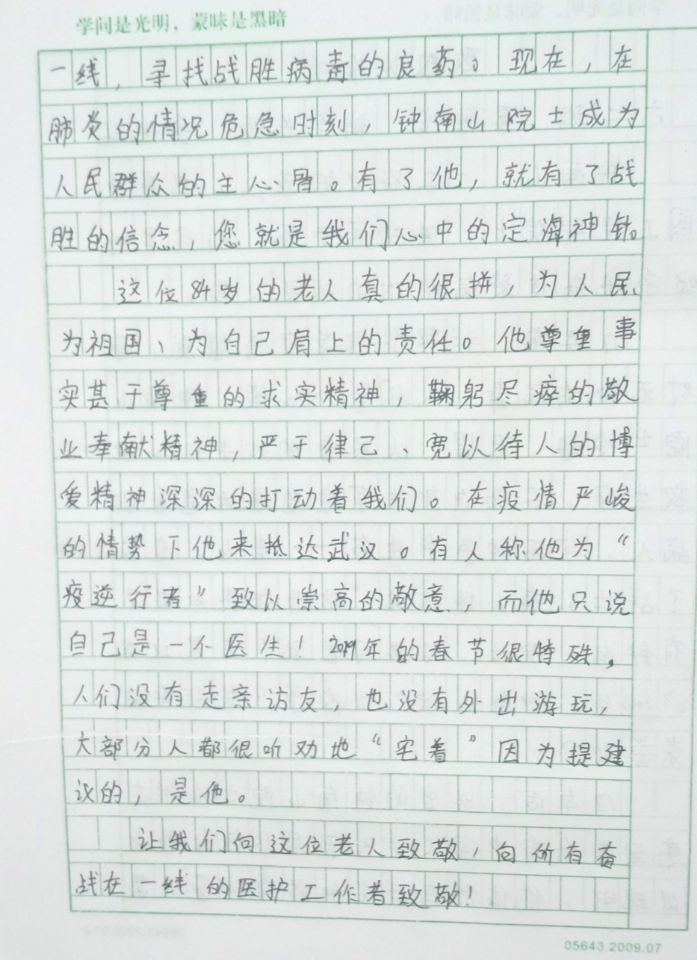 学问是光明，蒙昧是黑暗
一线，寻找战胜病毒的良药。现在，在
肺炎的情况危急时刻，钟南山院士成为
人民群众的主心骨。有了他，就有了战
胜的信念，您就是我们心中的定海神针。
这位84岁的老人真的很拼，为人民、
为祖国、为自己肩上的责任。他尊重事
实甚于尊重的求实精神，鞠躬尽瘁的敬
业奉献精神，严于律己、宽以待人的博
爱精神深深的打动着我们。在疫情严峻
的情势下他来抵达武汉。有人称他为“
疫逆行者”致以崇高的敬意，而他只说
自己是一个医生！2019年的春节很特殊，
人们没有走亲访友，也没有外出游玩，
大部分人都很听劝地“宅着”因为提建
议的，是他。
让我们向这位老人致敬，向所有奋
战在一线的医护工作者致敬！
05643.2009.07